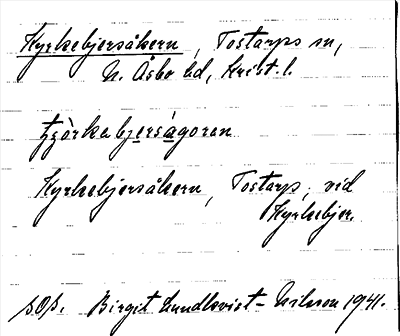 Kyrkebjersåkern, Tostarps sn,
N. Åsbo hd, Krist. l.
Kyrkebjersåkern, Tostarp, vid
Kyrkebjer.
s.o.p. Birgit Lundkvist-Nilsson 1941.